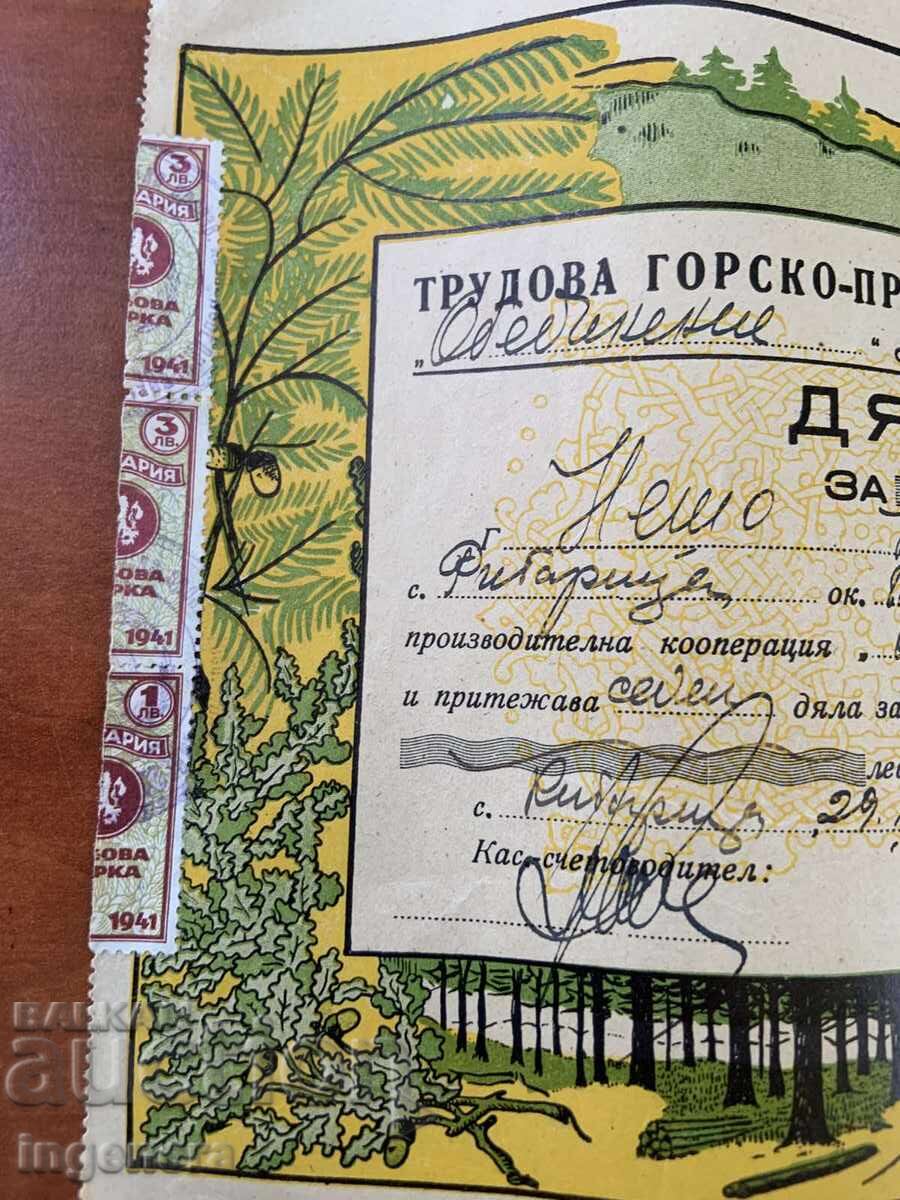 3
ЛВ.
АРИЯ
ОВА
РКА
1941
3
ЛВ.
АРИЯ
ОВА
РКА
1941
1
ЛВ.
АРИЯ
БОВА
РКА
1941
ТРУДОВА ГОРСКО-ПР
„Обединение“ с
ДЯ
ЗА
Г Нешо
с. Рибарица ок.
производителна кооперация „
и притежава седем дяла за
лев
с. Рибарица, 29.
Кас.-счетоводител:
BALKAN
auc
ingemera